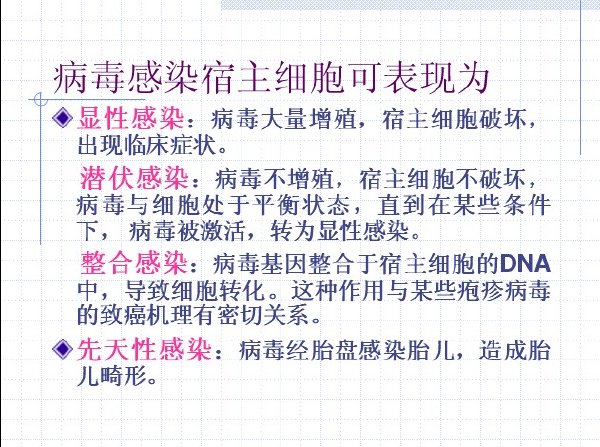 病毒感染宿主细胞可表现为
显性感染：病毒大量增殖，宿主细胞破坏，
出现临床症状。
潜伏感染：病毒不增殖，宿主细胞不破坏，
病毒与细胞处于平衡状态，直到在某些条件
下，病毒被激活，转为显性感染。
整合感染：病毒基因整合于宿主细胞的DNA
中，导致细胞转化。这种作用与某些疱疹病毒
的致癌机理有密切关系。
先天性感染：病毒经胎盘感染胎儿，造成胎
儿畸形。